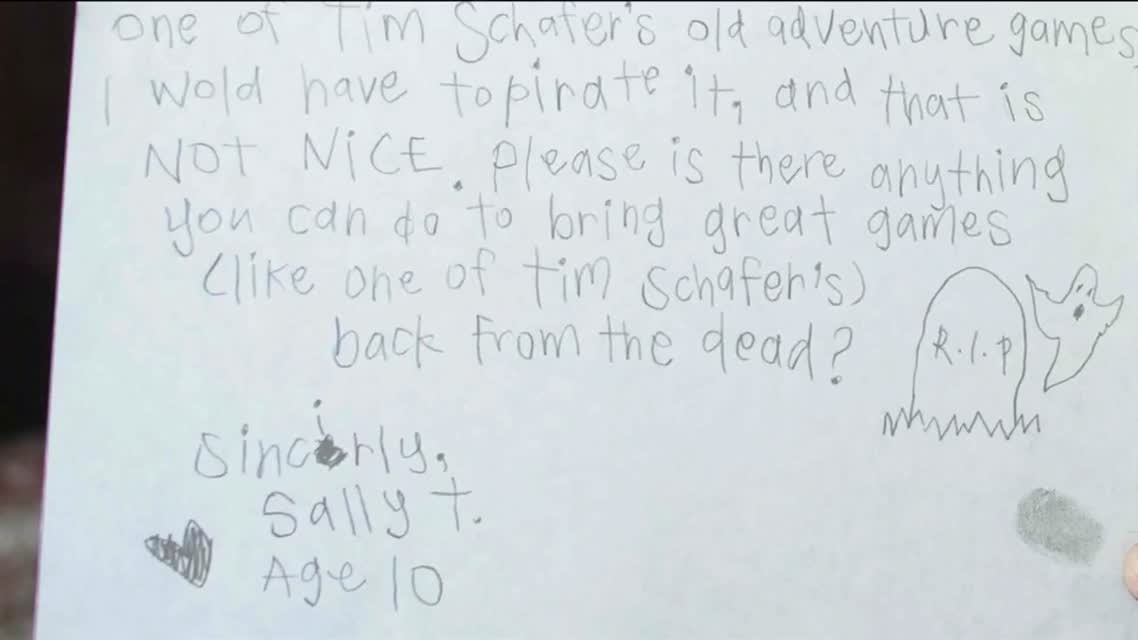 one of Tim Schafer's old adventure games,
I wold have to pirate it, and that is
NOT NiCE. please is there anything
you can do to bring great games
(like one of tim schafer's)
back from the dead?
R.I.P
sincirly,
Sally t.
Age 10